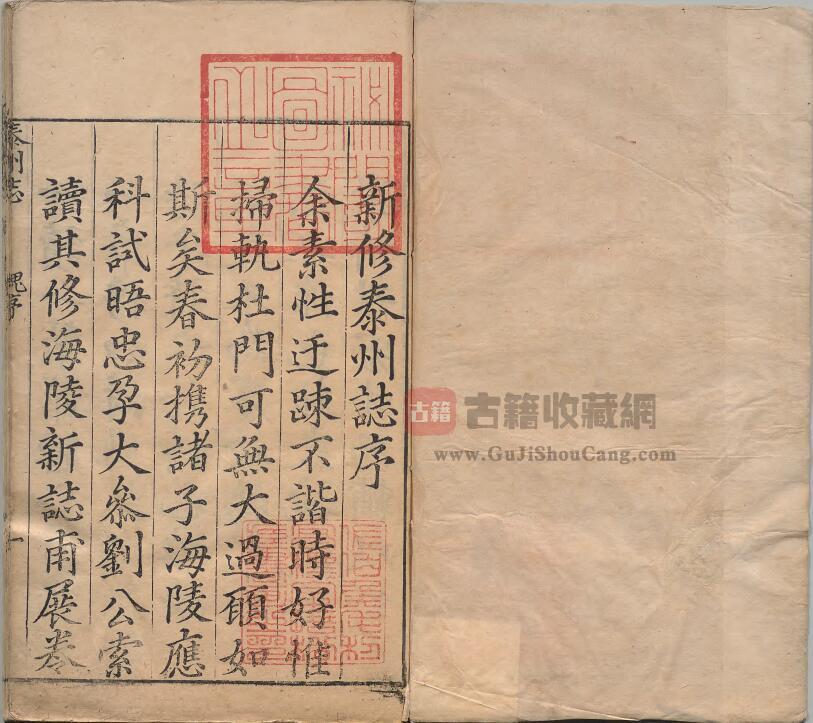 新修泰州誌序
余素性迂踈不諧時好惟
掃軌杜門可無大過碩如
斯矣春初携諸子海陵應
科試晤忠孕大叅劉公索
讀其修海陵新誌甫展卷
泰州誌
序
一
古籍
古籍收藏網
www.GuJiShouCang.com